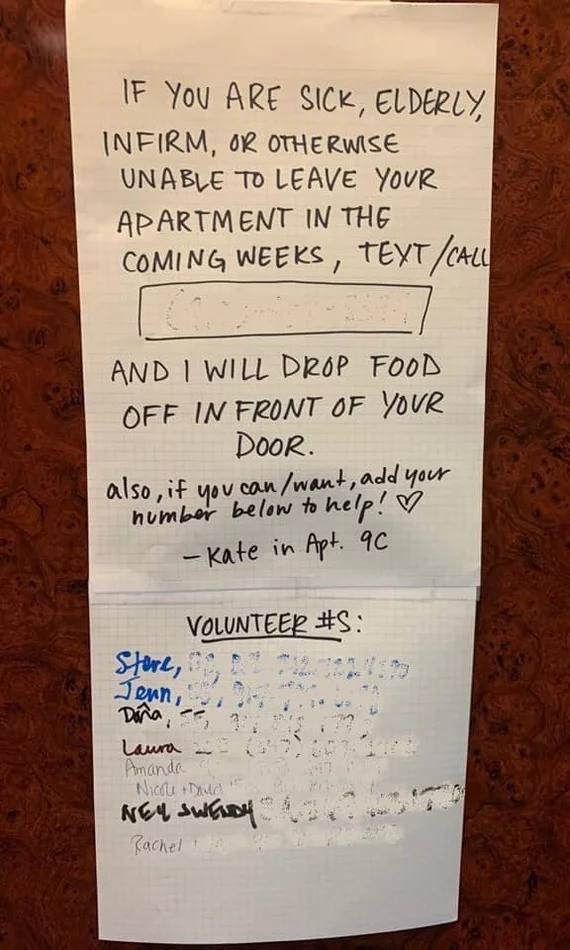 IF YOU ARE SICK, ELDERLY,
INFIRM, OR OTHERWISE
UNABLE TO LEAVE YOUR
APARTMENT IN THE
COMING WEEKS, TEXT/CALL
AND I WILL DROP FOOD
OFF IN FRONT OF YOUR
DOOR.
also, if you can/want, add your
number below to help! ♡
- Kate in Apt. 9C
VOLUNTEER #S:
Steve,
Jenn,
Laura
Amanda
Nicole + David
NEIL SWENDY
Rachel